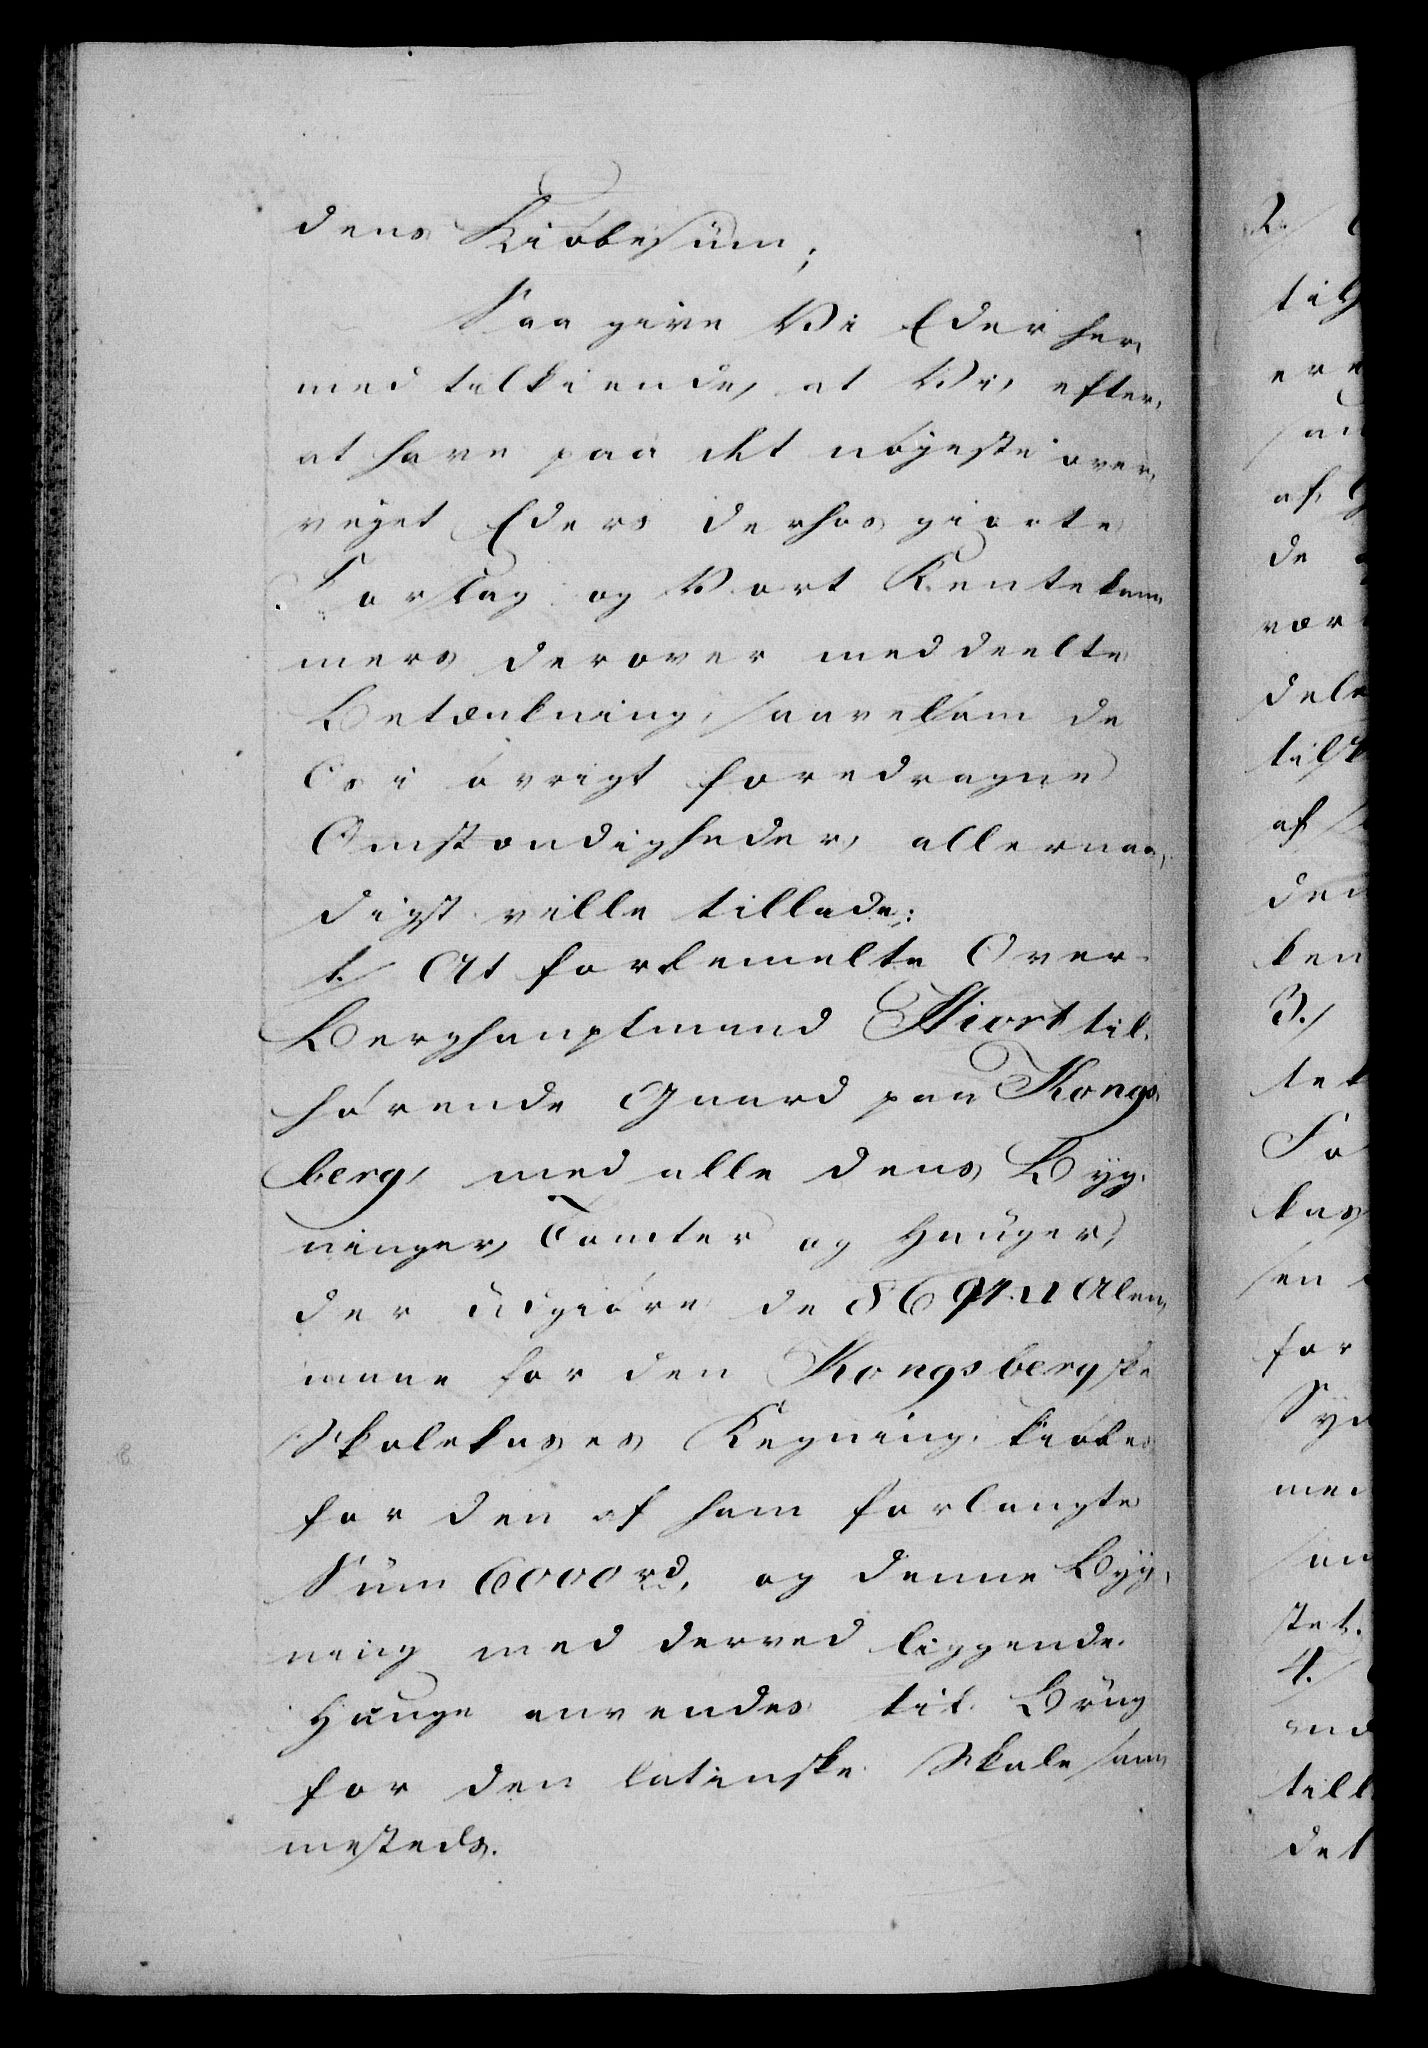 dens Kiöbesum;
Saa give Vi Eder her,
med tilkiende, at Vi, efter,
at have paa det nöyeste over,
veyet Eders derhos giorte
Forslag og Vort Rentekam,
mers derover meddeelte
Betænkning, saavelsom de
Os i övrigt foredragne
Omstændigheder, allernaa,
digst ville tillade:
1./ At forbemelte Over-
Berghauptmand Hiort til,
hörende Gaard paa Kongs,
berg, med alle dens Byg,
ninger, Tomter og Hauger,
der udgiöre de 8691 Alen,
maae for den Kongsbergske
Skolekasses Regning kiöbes
for den af ham forlangte
Sum 6000 rd, og denne Byg,
ning med derved liggende
Hauge anvendes til Brug
for den latinske Skole sam,
mesteds.
2./
til
ere
af
de
vær
dele
af
den
ken
3./
tet
kas
sen
for
men
stet.
4./
till
det